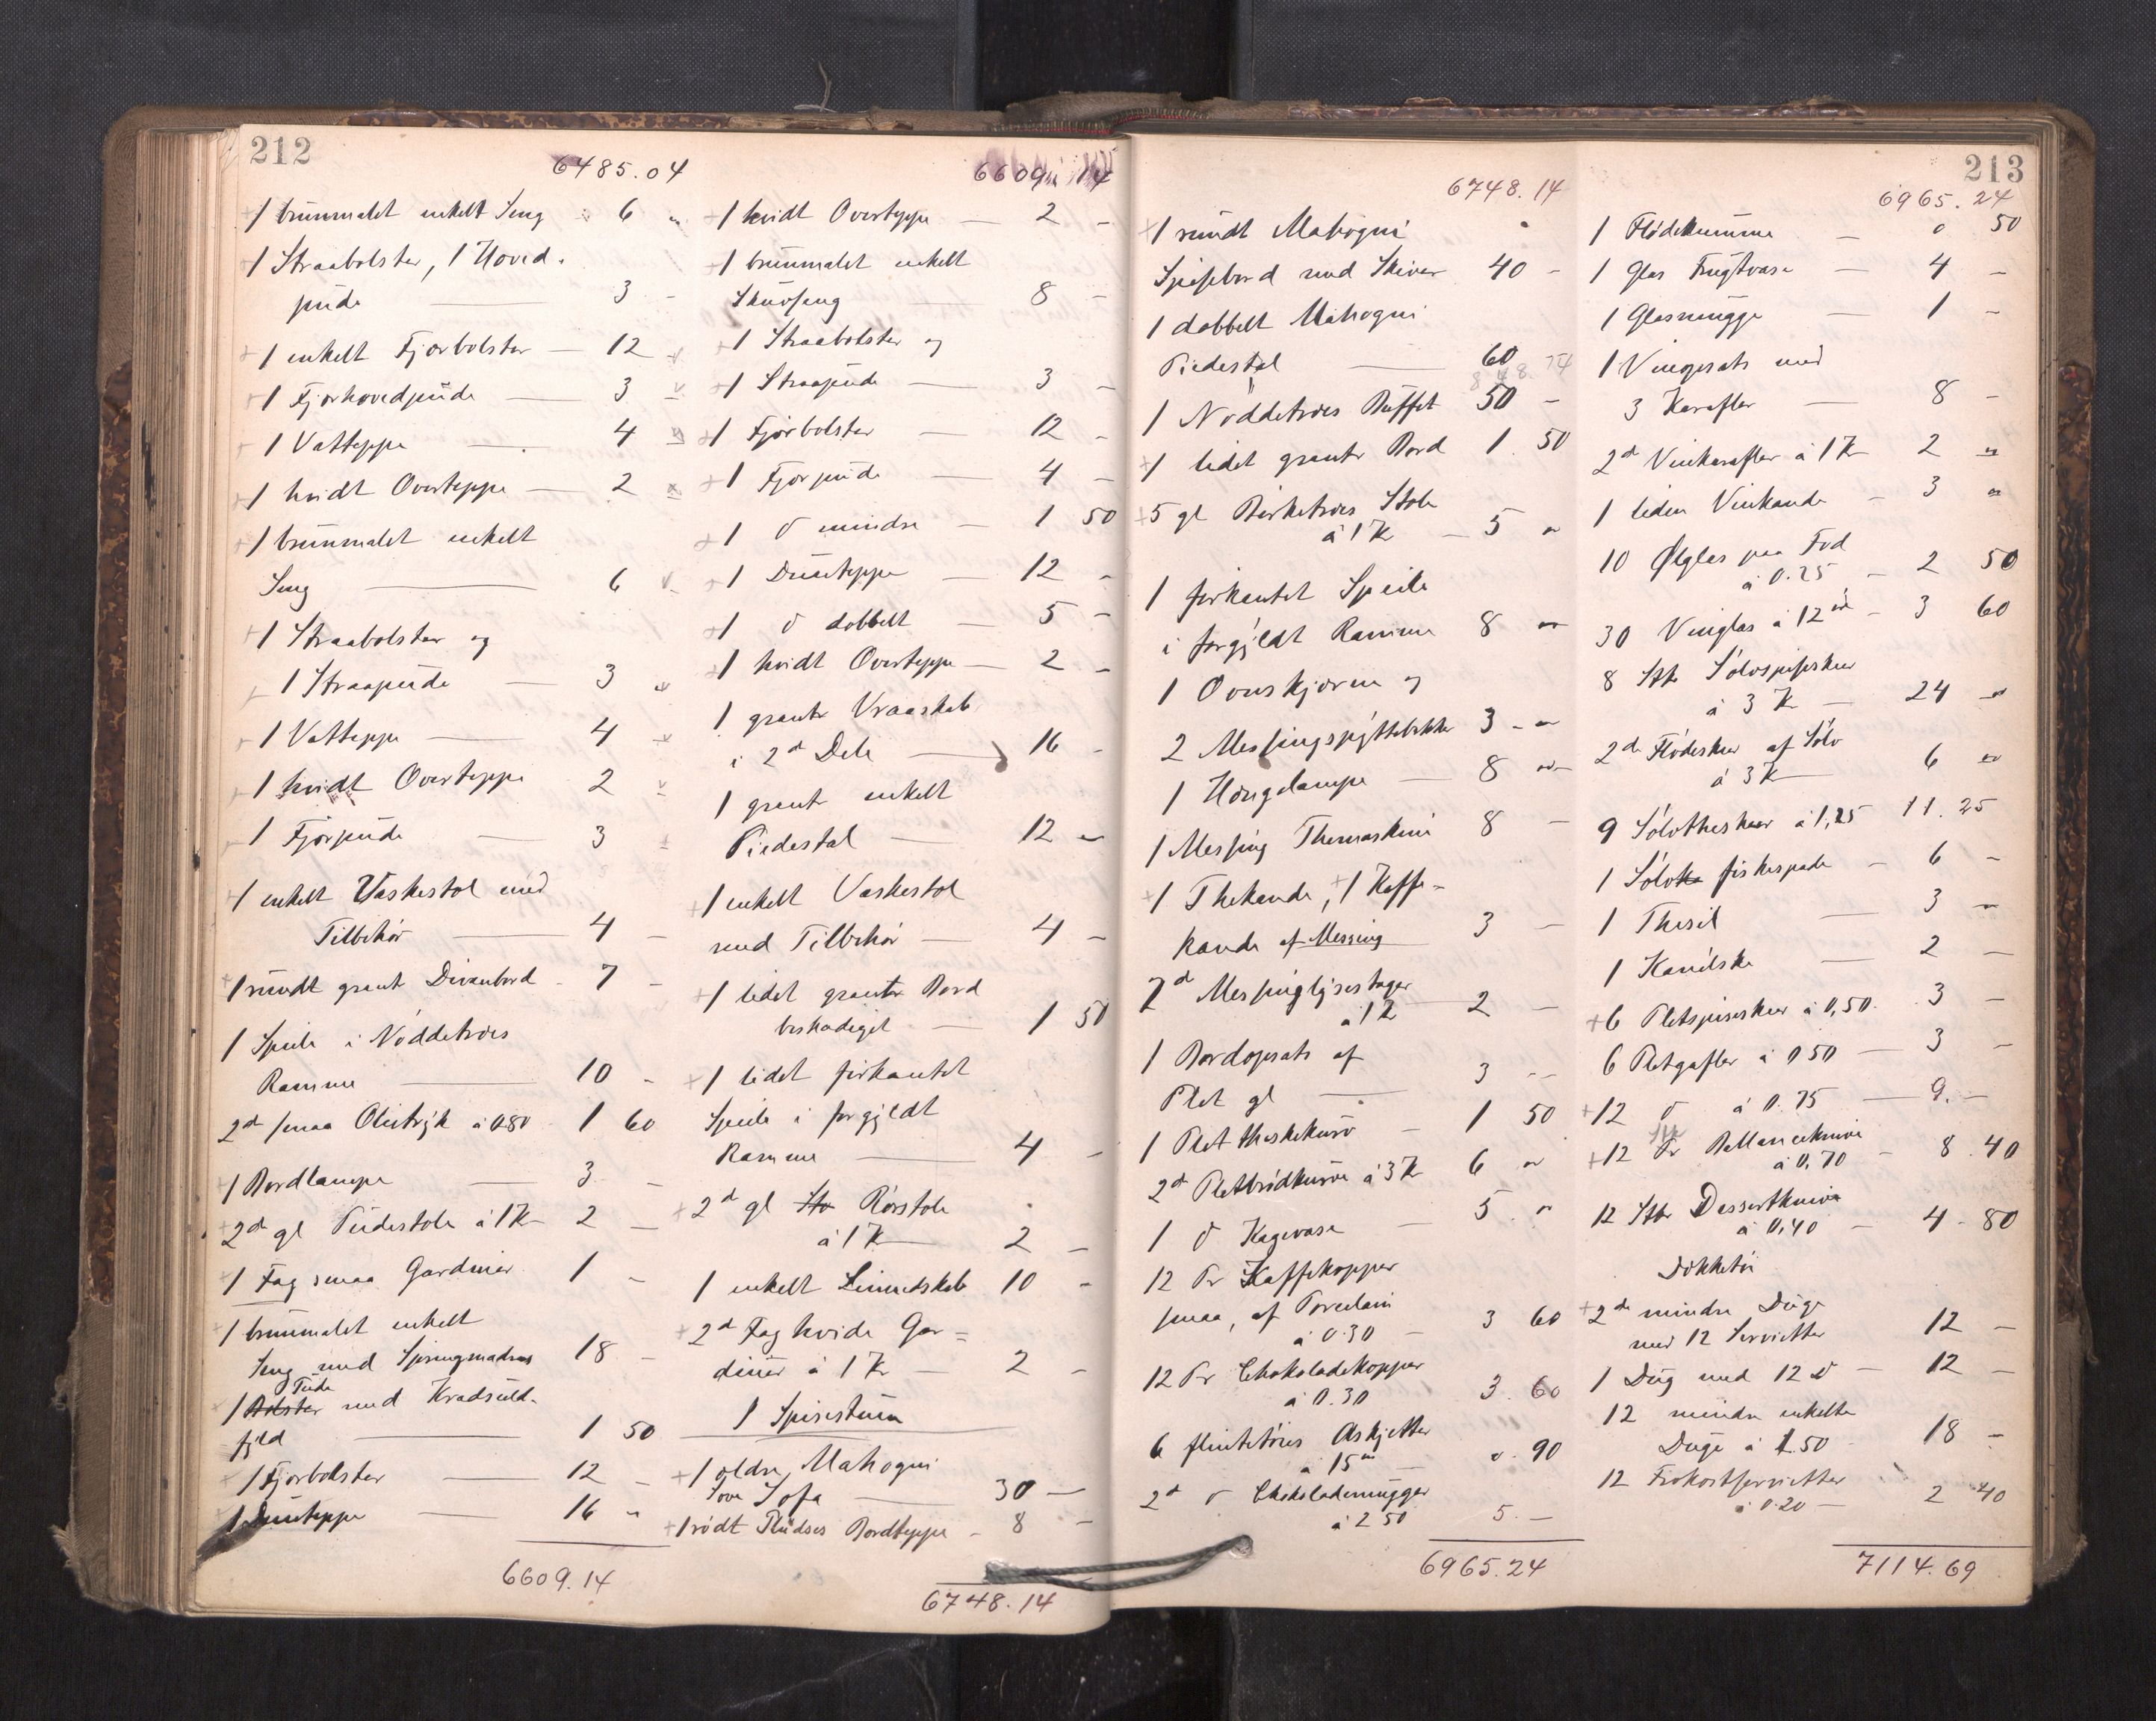 212
6485.04
+ 1 brunmalet enkelt Seng 6 "
1 Straabolster, 1 Hoved-
pude — 3 -
+ 1 enkelt Fjørbolster — 12
+ 1 Fjørhovedpude — 3
+ 1 Vatteppe — 4
+ 1 hvidt Overteppe — 2
+ 1 brunmalet enkelt
Seng — 6
+ 1 Straabolster og
1 Straapude — 3
+ 1 Vatteppe — 4
+ 1 hvidt Overteppe 2
1 Fjørpude — 3
1 enkelt Vaskestol med
Tilbehør — 4 -
+ 1 rundt grønt Divanbord 7 -
1 Speile i Nøddetræs
Ramme — 10 -
2de smaa Olietryk à 0.80 1 60
1 Bordlampe — 3 -
2de gl Pudestole à 1 K 2 -
1 Fag smaa Gardiner 1 -
1 brunmalet enkelt
Seng med Springmadras 18 -
Pude
1 Bolster med Krøduld-
fyld — 1 50
+ 1 Fjørbolster — 12 -
1 Duntæppe — 16 "
6609.14
6609.14
+ 1 hvidt Overteppe — 2 -
+ 1 brunmalet enkelt
Skuvseng — 8 -
+ 1 Straabolster og
+ 1 Straapude — 3 -
+ 1 Fjørbolster — 12 -
+ 1 Fjørpude — 4 -
+ 1 do mindre — 1 50
+ 1 Dunteppe — 12 -
+ 1 do dobbelt — 5 -
+ 1 hvidt Overteppe — 2 -
1 grønt Vraaskab
i 2de Dele — 16 -
1 grønt enkelt
Piedestal — 12 -
+ 1 enkelt Vaskestol
med Tilbehør — 4 -
+ 1 lidet grønt Bord
beskadiget — 1 50
+ 1 lidet firkantet
Speile i forgyldt
Ramme — 4 -
+ 2de gl Sto Rørstole
à 1 K 2 -
1 enkelt Linnedskab 10 -
+ 2de Fag hvide Gar=
diner à 1 K — 2 -
1 Spisestuen
+ 1 ældre Mahogni
Sove Sofa — 30 —
+ 1 rødt Pludses Bordteppe - 8 -
6748.14
213
6748.14
+ 1 rundt Mahogni
Spisebord med Skiver 40 -
1 dobbelt Mahogni
Piedestal — 60
1 Nøddetræs Buffet 50 -
+ 1 lidet grønt Bord 1 50
+ 5 gl Birketræs Stole
à 1 K — 5 "
1 firkantet Speile
i forgyldt Ramme 8 "
1 Ovnskjærm og
2 Messingspyttebakker 3 - "
1 Hængelampe — 8 "
1 Messing Themaskine 8 -
+ 1 Thekande, + 1 Kaffe-
kande af Messing 3 -
2de Messinglysestager
à 1 K 2 -
1 Bordopsats af
Plet gl — 3 -
1 Plet theskekurv - 1 50
2de Pletbrødkurve à 3 K 6 "
1 do Kagevase — 5 "
12 Pr Kaffekopper
smaa, af Porcelain
à 0.30 - 3 60
12 Pr Chokoladekopper
à 0.30 3. 60
6 flintetøies Askjetter
à 15 øre 0. 90
2de do Chokolademugger
à 2 50 5. —
6965.24
6965.24
1 Flødekumme — 0 50
1 Glas Frugtvase — 4 -
1 Glasmugge — 1 -
1 Vinopsats med
3 Karafler — 8 -
2de Vinkarafler à 1 K 2 "
1 liden Vinkande - 3 "
10 Ølglas paa Fod
à 0.25 - 2 50
30 Vinglas à 12 øre - 3 60
8 Stk Sølvspiseskeer
à 3 K — 24 "
2de Flødeskeer af Sølv
à 3 K 6 "
9 Sølvtheskeer à 1,25 11. 25
1 Sølvske fiskespade - 6 -
1 Thesil — 3 -
1 Kanelske — 2 -
+ 6 Pletspiseskeer à 0,50 3 -
6 Pletgafler à 0 50 — 3 -
+ 12 do à 0.75 — 9. -
Stk
+ 12 Pr Ballanceknive
à 0,70 - 8. 40
12 Stk Dessertknive
à 0,40 - 4 - 80
Dækketøi
+ 2de mindre Duge
med 12 Servietter 12 -
1 Dug med 12 do — 12 -
12 mindre enkelte
Duge à 1.50 18 -
12 Frokostservietter
à 0.20 — 2 40
7114.69